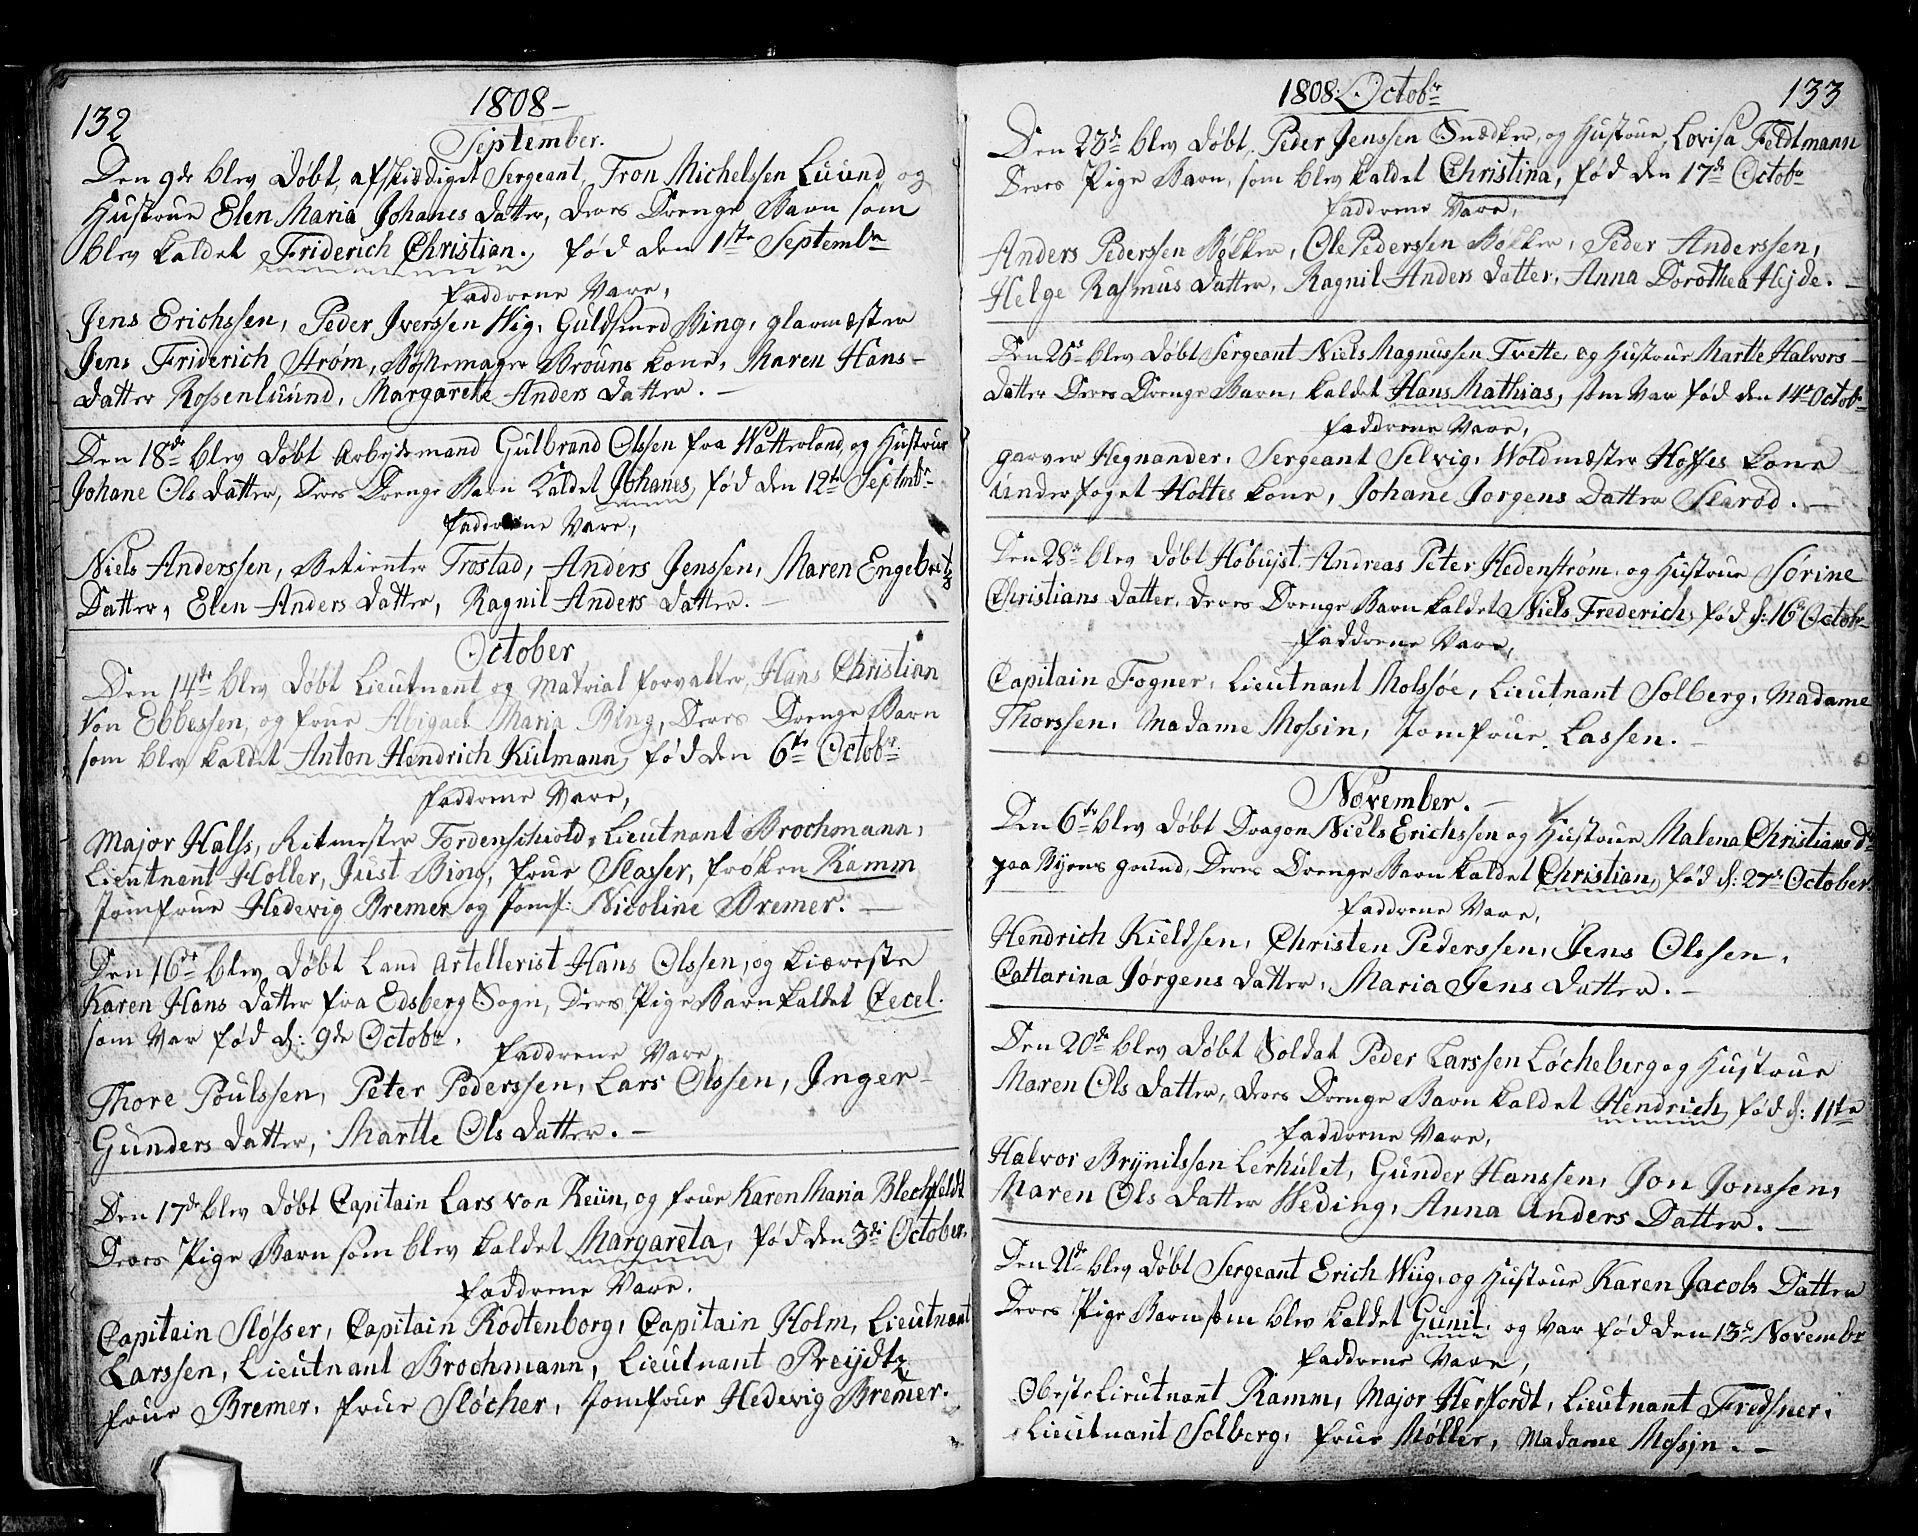 132
1808 –
September.
Den 9de blev Døbt, afskiediget Sergeant, Fron Michelssen Luund og
Hustrue Elen Maria Johanes Datter, Deres Drenge Barn som
blev kaldet Friderich Christian. fød den 1ste Septembr
Faddrene Vare,
Jens Erichssen, Peder Iverssen Wig, Guldsmed Bing, glarmæster
Jens Friderich Strøm, Bøssemager Brouns kone, Maren Hans-
datter Rossenluund, Margarete Anders datter. –
Den 18de blev Døbt Arbejdsmand Gulbrand Olssen fra Watterland, og Hustrue
Johane Ols datter, Deres Drenge Barn kaldet Johanes, fød den 12te Septmbr
Faddrene Vare,
Niels Anderssen, Betienter Trostad, Anders Jenssen, Maren Engebretz
Datter, Elen Anders datter, Ragnil Anders datter. –
October
Den 14de blev Døbt Lieutnant og Matrial forvalter, Hans Christian
Von Ebbessen, og frue Abigael Maria Bing, Deres Drenge Barn
som blev kaldet Anton Hendrich Kulmann, fød den 6te Octobr.
Faddrene Vare,
Major Halss, Ritmester Tordenschiold, Lieutnant Brochmann,
Lieutnant Holler, Just Bing, frue Slasser, frøken Ramm
Jomfrue Hedevig Bremer og Jomf: Nicoline Bremer. –
Den 16de blev Døbt Land artellerist Hans Olssen, og kiæreste
Karen Hans datter fra Edsberg Sogn, Deres Pige Barn kaldet Cecel.
som var fød d: 9de Octobr.
Faddrene Vare,
Thore Poulssen, Peter Pederssen, Lars Olssen, Inger
Gunders datter, Marthe Ols datter. –
Den 17de blev Døbt Capitain Lars von Reiin, og frue Karen Maria Blechfeldt
Deres Pige Barn som blev kaldet Margareta, fød den 3de October.
Faddrene Vare.
Capitain Sløsser, Capitain Rodtenborg, Capitain Holm, Lieutnant
Larssen, Lieutnant Brochmann, Lieutnant Preydtz
frue Bremer, frue Sløcher, Jomfrue Hedevig Bremer.
1808 Octobr
133
Den 23de blev Døbt, Peder Jenssen Snædker, og Hustrue, Lovisa Feldtmann
Deres Pige Barn, som blev kaldet Christina, fød den 17de Octobr
Faddrene Vare,
Anders Pederssen Bøkker, Ole Pederssen Bøkker, Peder Anderssen,
Helge Rasmus datter, Ragnil Anders datter, Anna Dorothea Hejde. –
Den 25de blev Døbt Sergeant Niels Magnussen Tvette, og Hustrue Marthe Halvors
datter Deres Drenge Barn, kaldet Hans Mathias, som var fød den 14de Octobr
Faddrene Vare,
garver Hegnander, Sergeant Selvig, Woldmæster Hoffes kone
Underfoget Holtes kone, Johane Jorgens datter Slarød. –
Den 28de blev Døbt Hobuist Andreas Peter Hedenstrøm, og Hustrue Sørine
Christians datter, deres Drenge Barn kaldet Niels Frederich, fød d: 16de Octobr
Faddrene Vare,
Capitain Fogner, Lieutnant Molssøe, Lieutnant Solberg, Madame
Thorssen, Madame Mossin, Jomfrue Lassen. –
November. –
Den 6te blev Døbt Dragon Niels Erichssen og Hustrue Malena Christians Dr
paa Byens grund, Deres Drenge Barn kaldet Christian, fød d: 27de October
Faddrene Vare,
Hendrich Kieldsen, Christen Pederssen, Jens Olssen,
Cattarina Jørgens datter, Maria Jens datter. –
Den 20de blev Døbt Soldat Peder Larssen Løcheberg og Hustrue
Maren Ols datter, deres Drenge Barn kaldet Hendrich, fød d: 11te
Faddrene Vare,
Halvor Brynilssen Lerhulet, Gunder Hanssen, Jon Jonssen,
Maren Ols datter Weding, Anna Anders Datter. –
Den 21de blev Døbt Sergeant Erich Wiig, og Hustrue Karen Jacobs Datter
Deres Pige Barn som blev kaldet Gunil, og var fød den 13de Novembr
Faddrene Vare,
Obeste Lieutnant Ramm, Major Herfordt, Lieutnant Fredsner,
Lieutnant Solberg, frue Møller, Madame Mossin. –